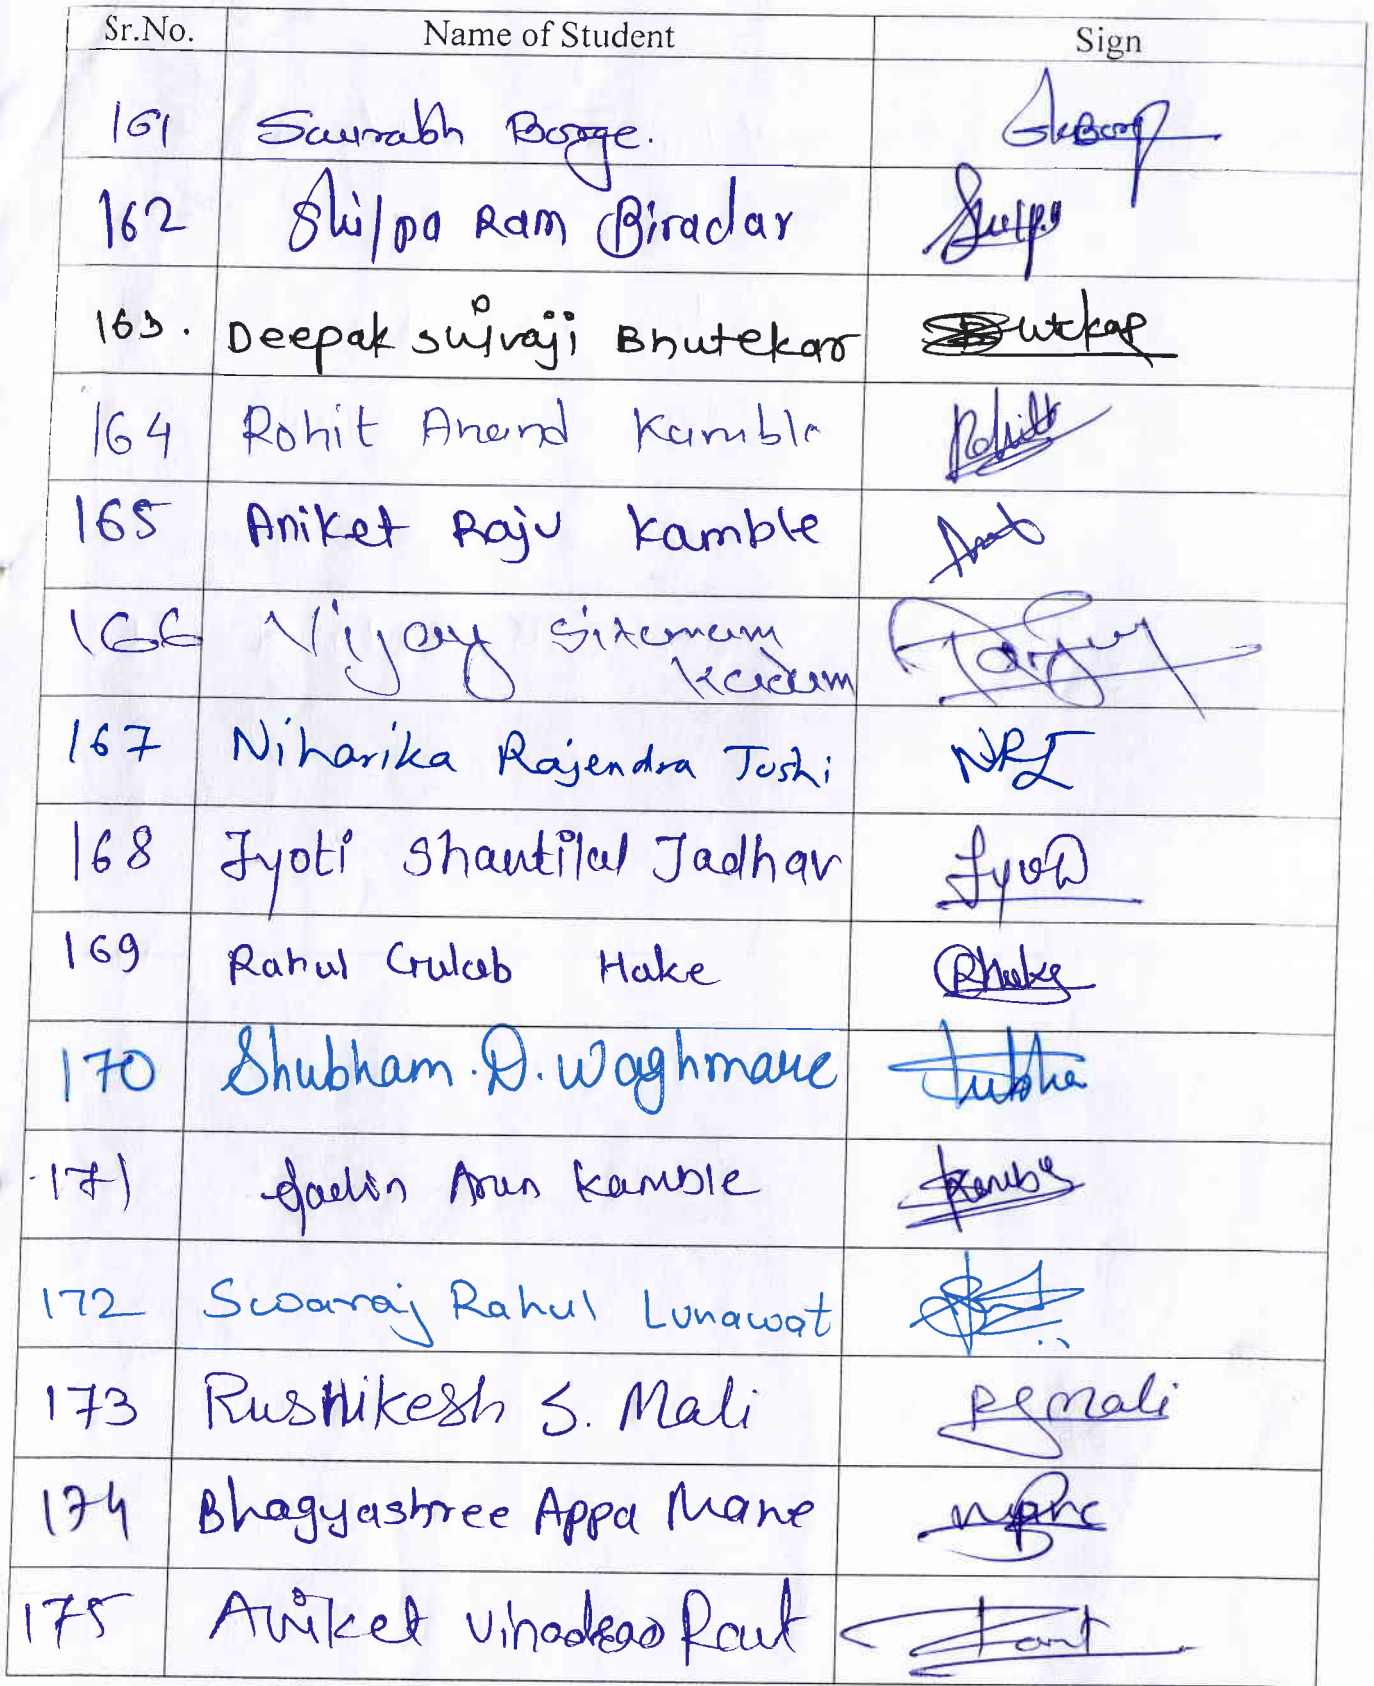 Sr.No. Name of Student Sign
161 Saurabh Borge.
162 Shilpa Ram Biradar Shilpa
163. Deepak Bhutekar
164 Rohit Anand Kamble Rohit
165 Aniket Raju Kamble
166 Vijay Sitaram
Kadam
167 Niharika Rajendra Joshi NRJ
168 Jyoti Shantilal Jadhav Jyoti
169 Rahul Gulab Hake
170 Shubham. D. Waghmare
171 Arun Kamble Kamble
172 Swaraj Rahul Lunawat
173 Rushikesh S. Mali RSMali
174 Bhagyashree Appa Mane
175 Aniket Vinodrao Raut Raut